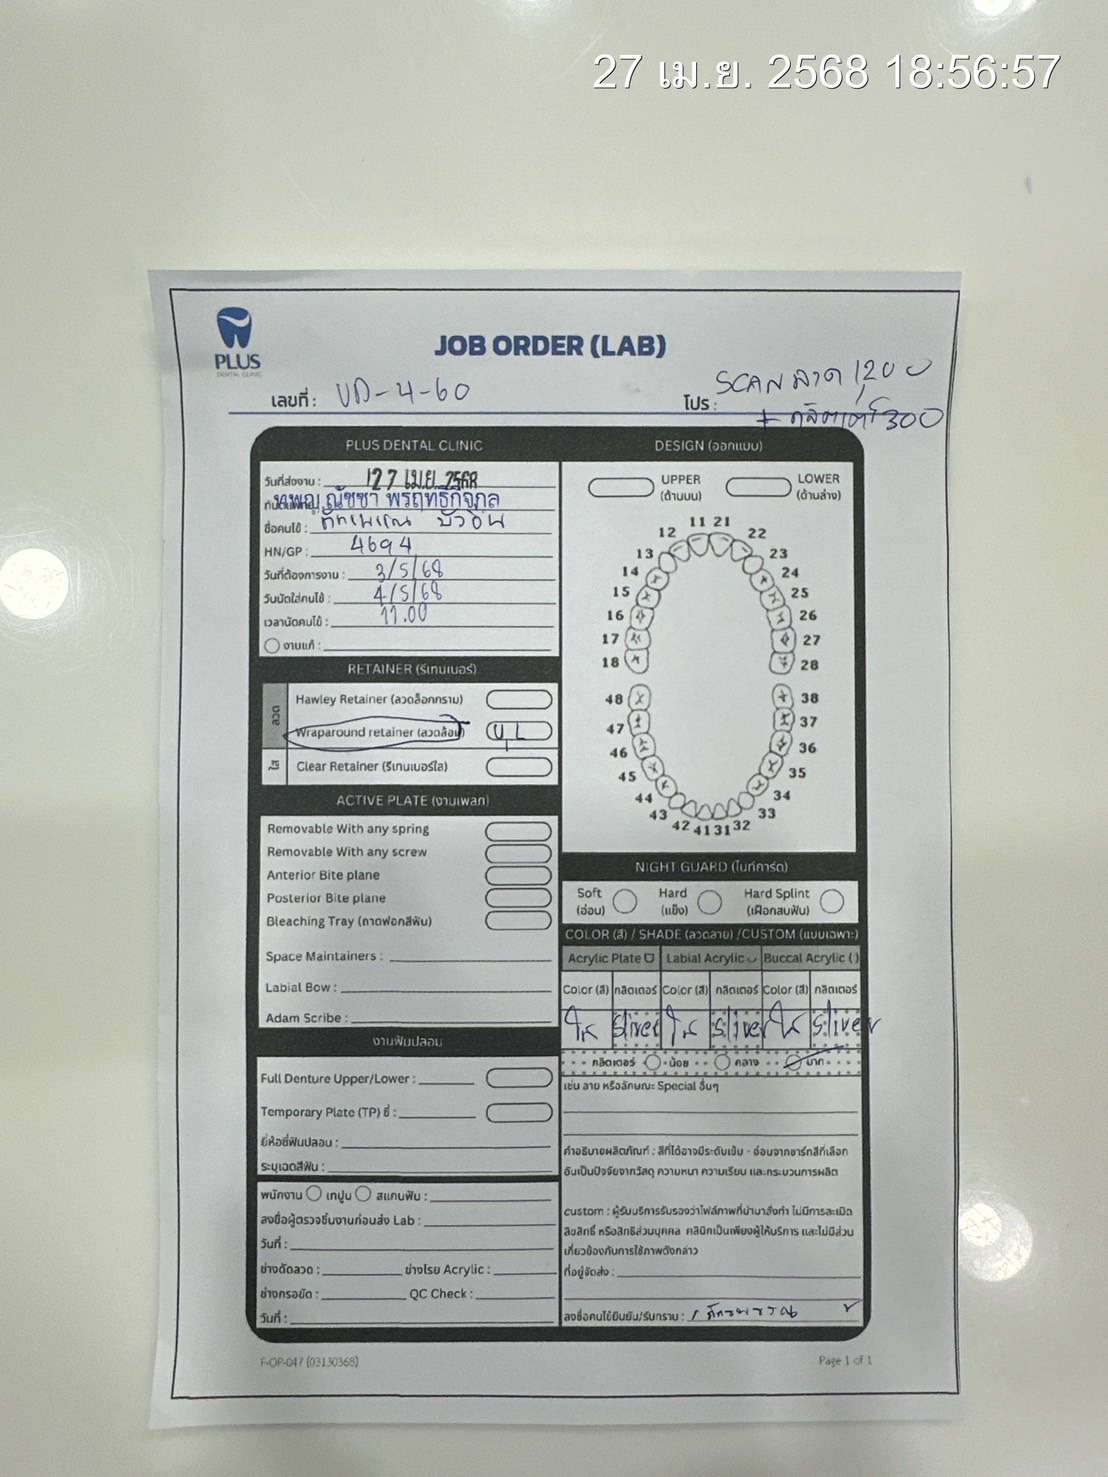 27 เม.ย. 2568 18:56:57
PLUS
DENTAL CLINIC
JOB ORDER (LAB)
เลขที่ : UD-4-60
โปร : SCAN ลวด 1,200
+ กลิตเตอร์ 300
PLUS DENTAL CLINIC
วันที่ส่งงาน : 27 เม.ย. 2568
ทพญ.ณัชชา พรฤทธิ์กิจกุล
ชื่อคนไข้ : บัวอิน
HN/GP : 4694
วันที่ต้องการงาน : 3/5/68
วันนัดใส่คนไข้ : 4/5/68
เวลานัดคนไข้ : 11.00
งานแก้ :
RETAINER (รีเทนเนอร์)
ลวด
Hawley Retainer (ลวดล็อกกราม)
Wraparound retainer (ลวดล้อม) U, L
ใส
Clear Retainer (รีเทนเนอร์ใส)
ACTIVE PLATE (งานเพลท)
Removable With any spring
Removable With any screw
Anterior Bite plane
Posterior Bite plane
Bleaching Tray (ถาดฟอกสีฟัน)
Space Maintainers :
Labial Bow :
Adam Scribe :
งานฟันปลอม
Full Denture Upper/Lower :
Temporary Plate (TP) ซี่ :
ยี่ห้อซี่ฟันปลอม :
ระบุเฉดสีฟัน :
พนักงาน เทปูน สแกนฟัน :
ลงชื่อผู้ตรวจชิ้นงานก่อนส่ง Lab :
วันที่ :
ช่างดัดลวด : ช่างโรย Acrylic :
ช่างกรอขัด : QC Check :
วันที่ :
DESIGN (ออกแบบ)
UPPER
(ด้านบน)
LOWER
(ด้านล่าง)
11 21
12 22
13 23
14 24
15 25
16 26
17 27
18 28
48 38
47 37
46 36
45 35
44 34
43 33
42 41 31 32
NIGHT GUARD (ไนท์การ์ด)
Soft
(อ่อน)
Hard
(แข็ง)
Hard Splint
(เฝือกสบฟัน)
COLOR (สี) / SHADE (ลวดลาย) /CUSTOM (แบบเฉพาะ)
Acrylic Plate Labial Acrylic Buccal Acrylic ()
Color (สี) กลิตเตอร์ Color (สี) กลิตเตอร์ Color (สี) กลิตเตอร์
ใส Sliver ใส Sliver ใส Sliver
กลิตเตอร์ น้อย กลาง มาก
เช่น ลาย หรือลักษณะ Special อื่นๆ
คำอธิบายผลิตภัณฑ์ : สีที่ได้อาจมีระดับเข้ม - อ่อนจากชาร์ทสีที่เลือก
อันเป็นปัจจัยจากวัสดุ ความหนา ความเรียบ และกระบวนการผลิต
custom : ผู้รับบริการรับรองว่าไฟล์ภาพที่นำมาสั่งทำ ไม่มีการละเมิด
ลิขสิทธิ์ หรือสิทธิส่วนบุคคล คลินิกเป็นเพียงผู้ให้บริการ และไม่มีส่วน
เกี่ยวข้องกับการใช้ภาพดังกล่าว
ที่อยู่จัดส่ง :
ลงชื่อคนไข้ยืนยัน/รับทราบ :
F-OP-047 (03130368)
Page 1 of 1